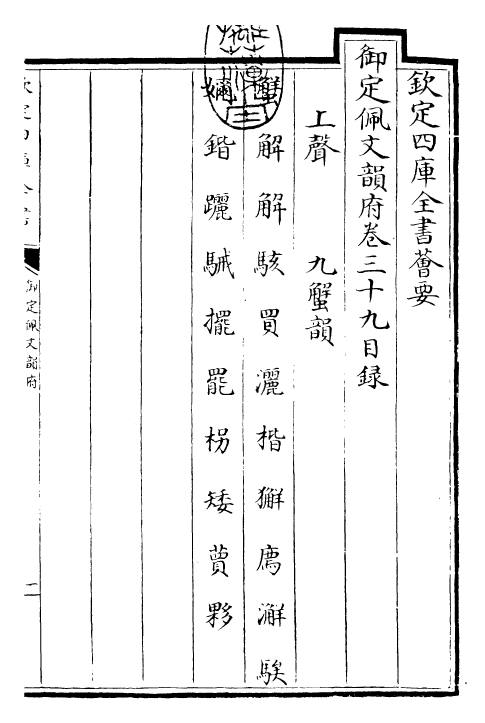 欽定四庫全書薈要
御定佩文韻府卷三十九目録
上聲　九蟹韻
蟹解解駭買灑楷獬廌澥騃
嬭鍇躧駴擺罷枴矮蕒夥
御定佩文韻府